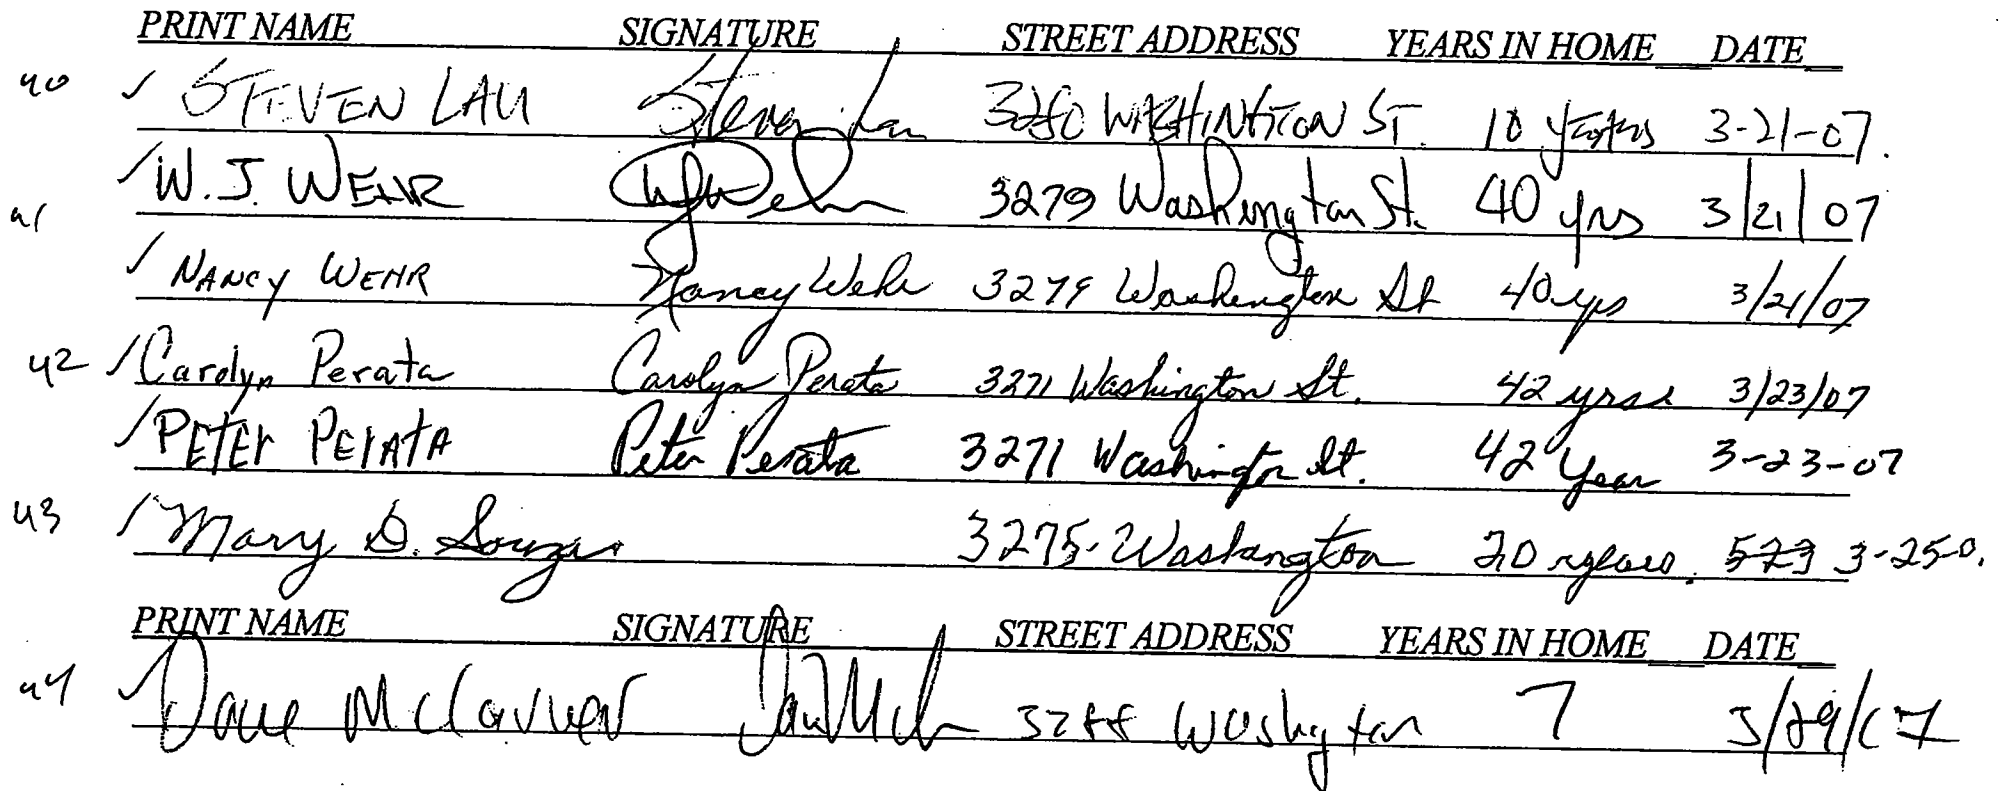 PRINT NAME SIGNATURE STREET ADDRESS YEARS IN HOME DATE
40 ✓ STEVEN LAU Steven Lau WASHINTION ST. 10 years 3-21-07.
41 ✓ W. J. WEHR WJWehr 3279 Washington St. 40 yrs 3/21/07
✓ NANCY WEHR Nancy Wehr 3279 Washington St 40 yrs 3/21/07
42 ✓ Carolyn Perata Carolyn Perata 3271 Washington St. 42 yrs 3/23/07
✓ PETER PERATA Peter Perata 3271 Washington St. 42 Year 3-23-07
43 ✓ Mary D. Souza 3275 Washington 20 years. 523 3-25-0.
PRINT NAME SIGNATURE STREET ADDRESS YEARS IN HOME DATE
44 ✓ Dave 3288 Washington 7 3/29/07